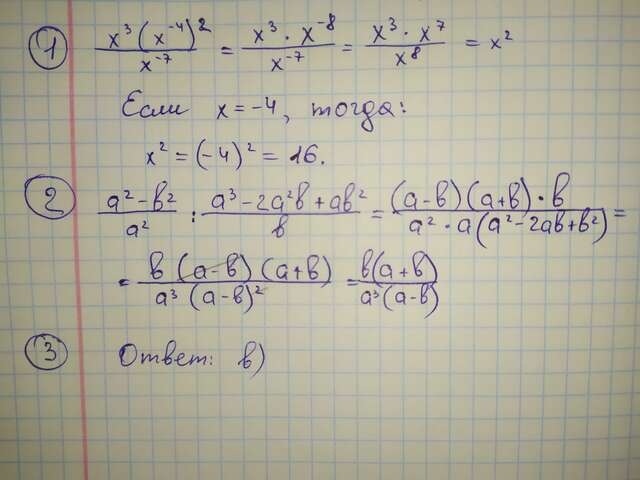 ① x³(x⁻⁴)² / x⁻⁷ = x³ · x⁻⁸ / x⁻⁷ = x³ · x⁷ / x⁸ = x²
Если x = -4, тогда:
x² = (-4)² = 16.
② a² - b² / a² : a³ - 2a²b + ab² / b = (a-b)(a+b) · b / a² · a(a² - 2ab + b²) =
= b(a-b)(a+b) / a³(a-b)² = b(a+b) / a³(a-b)
③ Ответ: в)